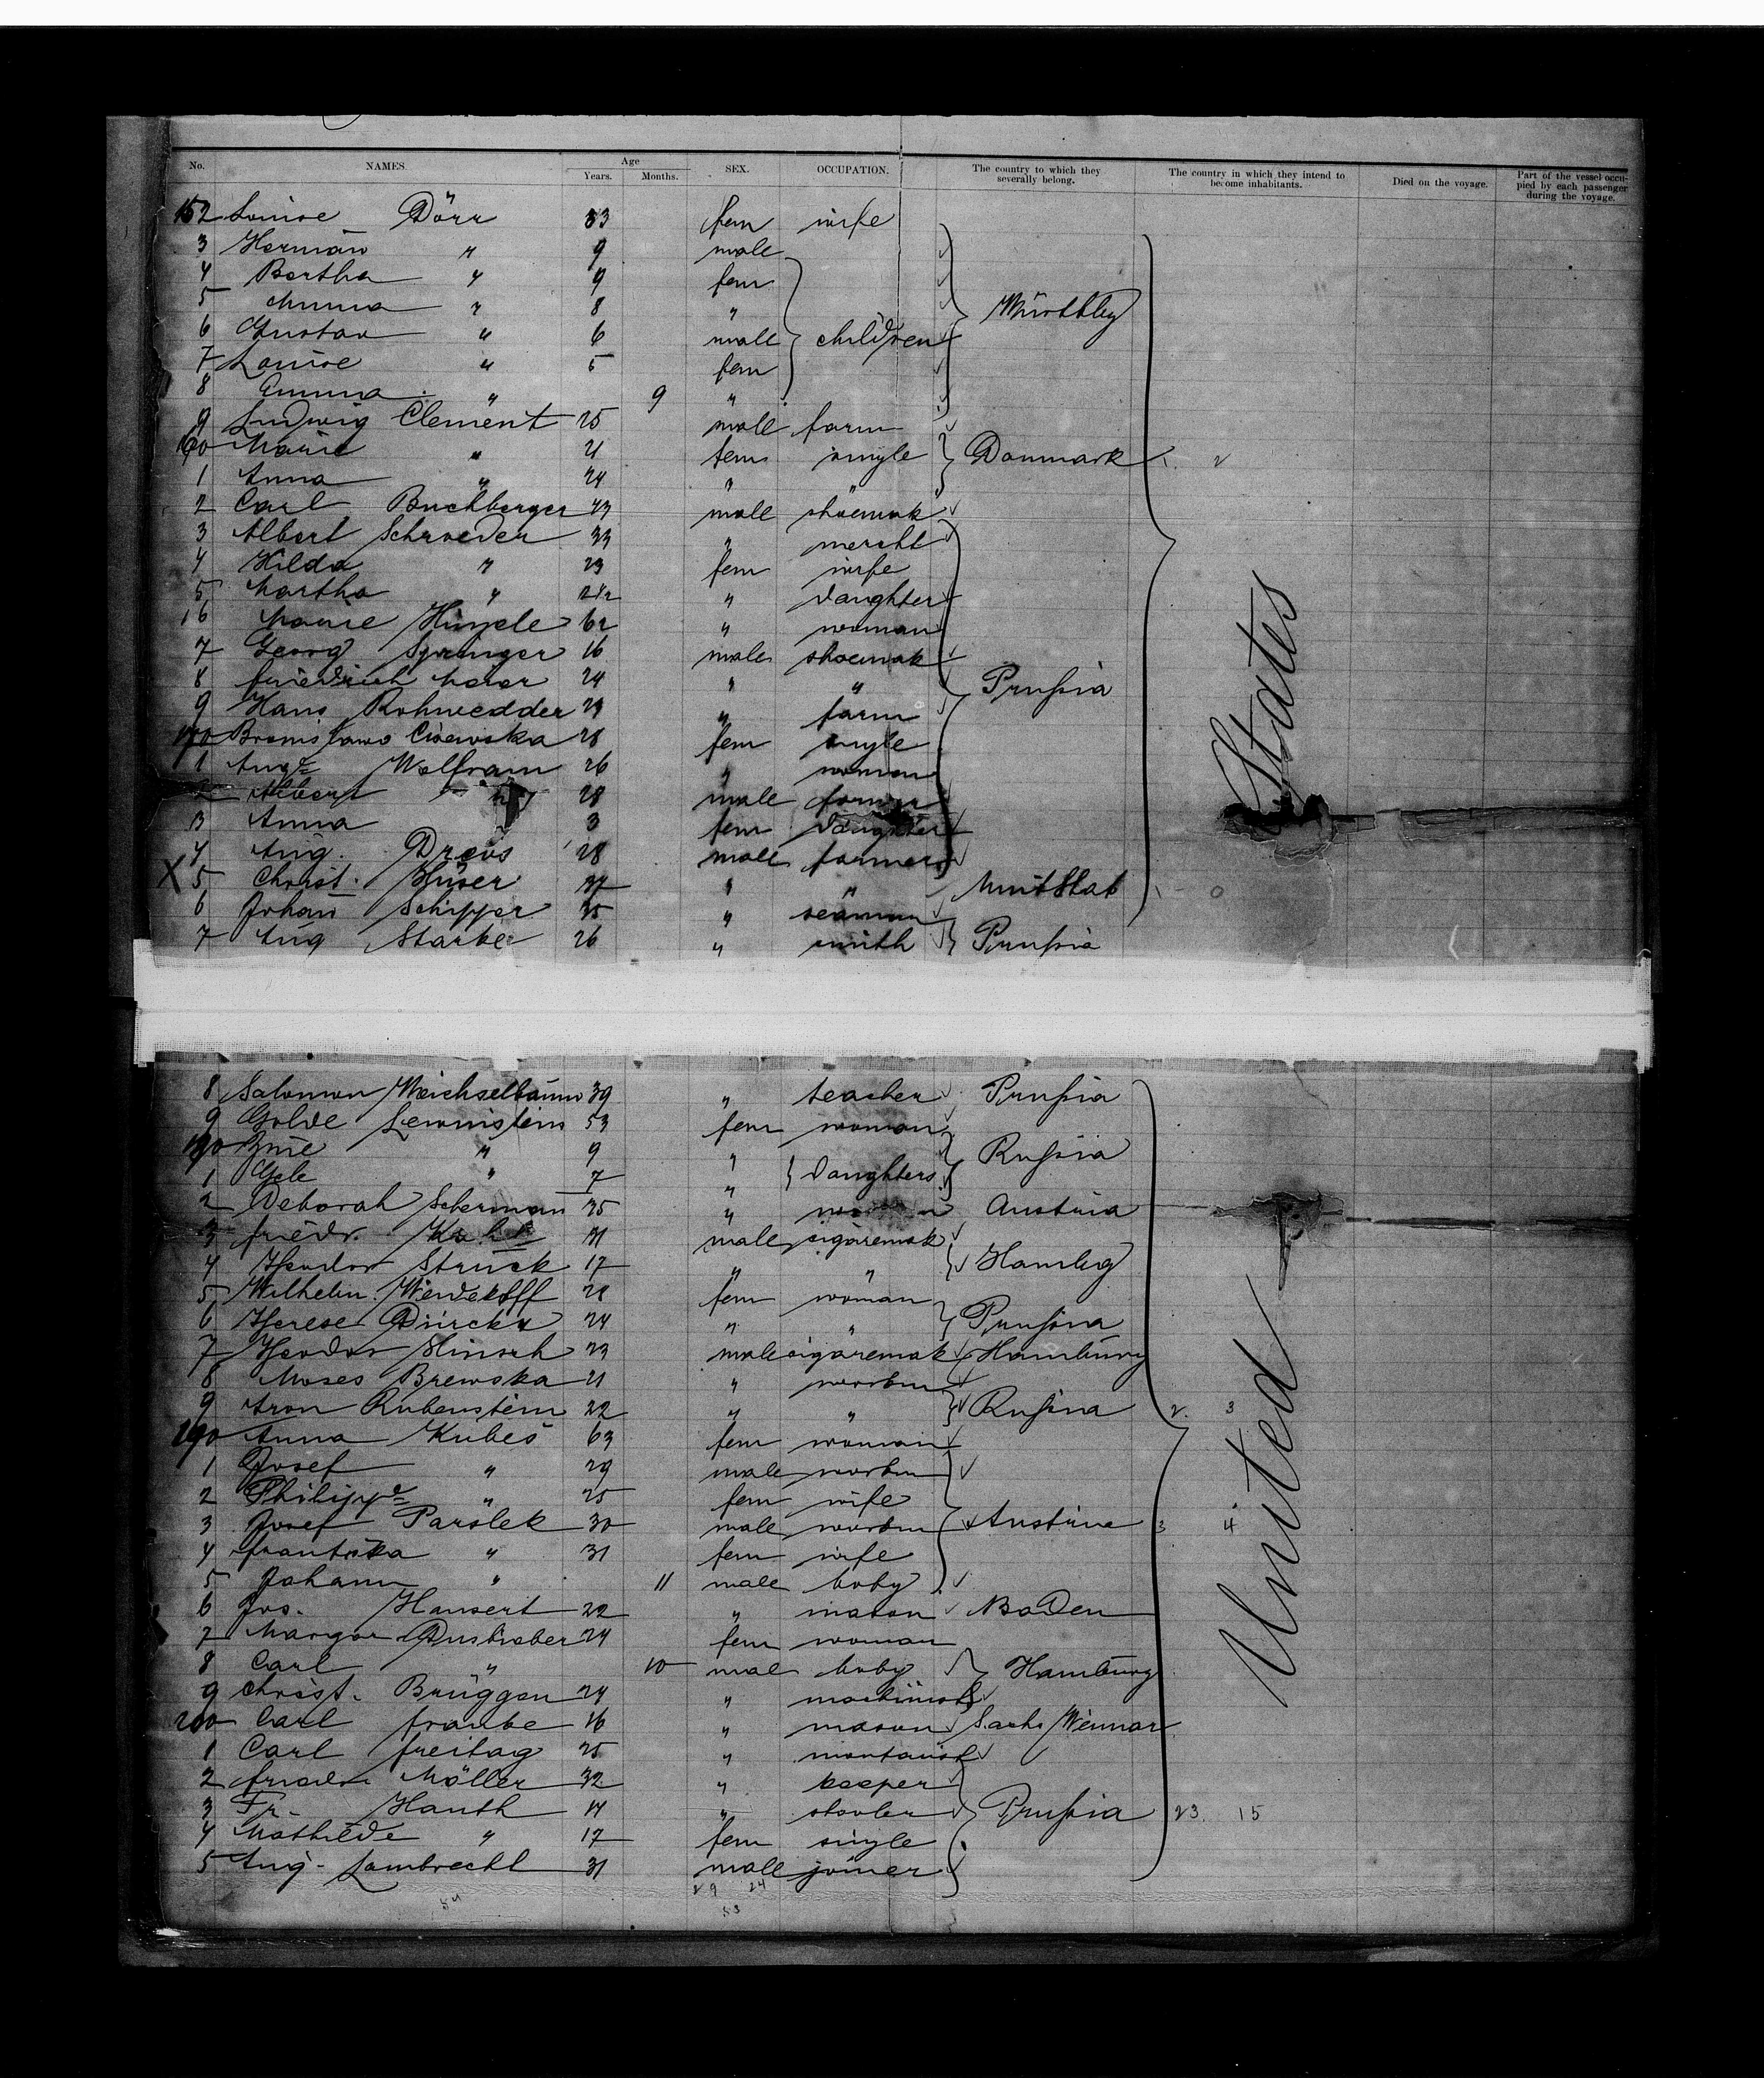 No. NAMES Age Years. Months. SEX. OCCUPATION. The country to which they severally belong. The country in which they intend to become inhabitants. Died on the voyage. Part of the vessel occupied by each passenger during the voyage.
152 Louise Dörr 33 fem wife
3 Herman " 9 male
4 Bertha " 9 fem
5 " 8 " Württbg
6 Gustav " 6 male children
7 Louise " 5 fem
8 Emma " 9 "
9 Ludwig Clement 25 male farm
160 Marie " 21 fem single Danmark
1 Anna " 24 " "
2 Carl Buchberger 43 male shoemak
3 Albert Schroeder 33 " mercht
4 Hilda " 23 fem wife
5 Martha " 2 1/2 " daughter
16 Marie 62 " woman
7 Georg Springer 16 male shoemak
8 Friedrich 24 " " Prussia
9 Hans Rohwedder 29 " farm
170 Bronislawa 28 fem single
1 Auge Wolfram 26 " woman
2 Albert " 28 male farmer
3 Anna 3 fem daughter
4 Aug. Drews 28 male farmer
X 5 Christ. 37 " " Unit Stat
6 Johan Schipper 35 " seaman
7 Aug Starke 26 " smith Prussia
8 Salomon Weichselbaum 39 " teacher Prussia
9 Golde Lewinstein 53 fem woman
180 " 9 " Russia
1 " 7 " daughters
2 Deborah Scherman 35 " woman Austria
3 Friedr. 31 male cigaremak
4 Theodor Struck 17 " " Hambg
5 Wilhelm. 28 fem woman
6 Therese 24 " " Prussia
7 Theodor Hinsch 23 male cigaremak Hamburg
8 Moses Brewska 21 " workm
9 Aron Rubenstein 22 " " Russia 2. 3
190 Anna Kubes 63 fem woman
1 Josef " 29 male workm
2 Philippe " 25 fem wife
3 Josef Parslek 30 male workm Austria 3 4
4 Frantiska " 31 fem wife
5 Johann " 11 male baby
6 Jos. Hansert 22 " mason Baden
7 24 fem woman
8 Carl " 10 male baby Hamburg
9 Christ. Brüggen 24 " machinist
200 Carl Franke 16 " mason Sachs Weimar
1 Carl Freitag 25 "
2 Friedr. Möller 32 " keeper
3 Fr. Hauth " Prussia 23. 15
4 Mathilde " 17 fem single
5 Aug. Lambrecht 31 male joiner
29 24
54 53
United States